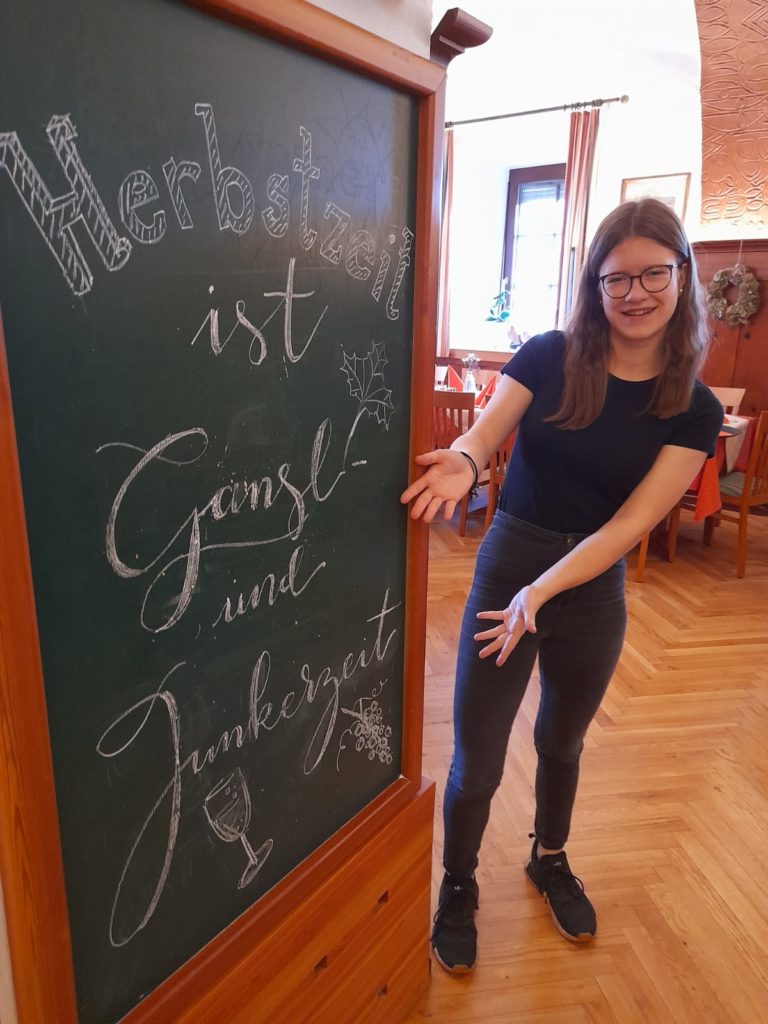 Herbstzeit
ist
Gansl-
und
Junkerzeit